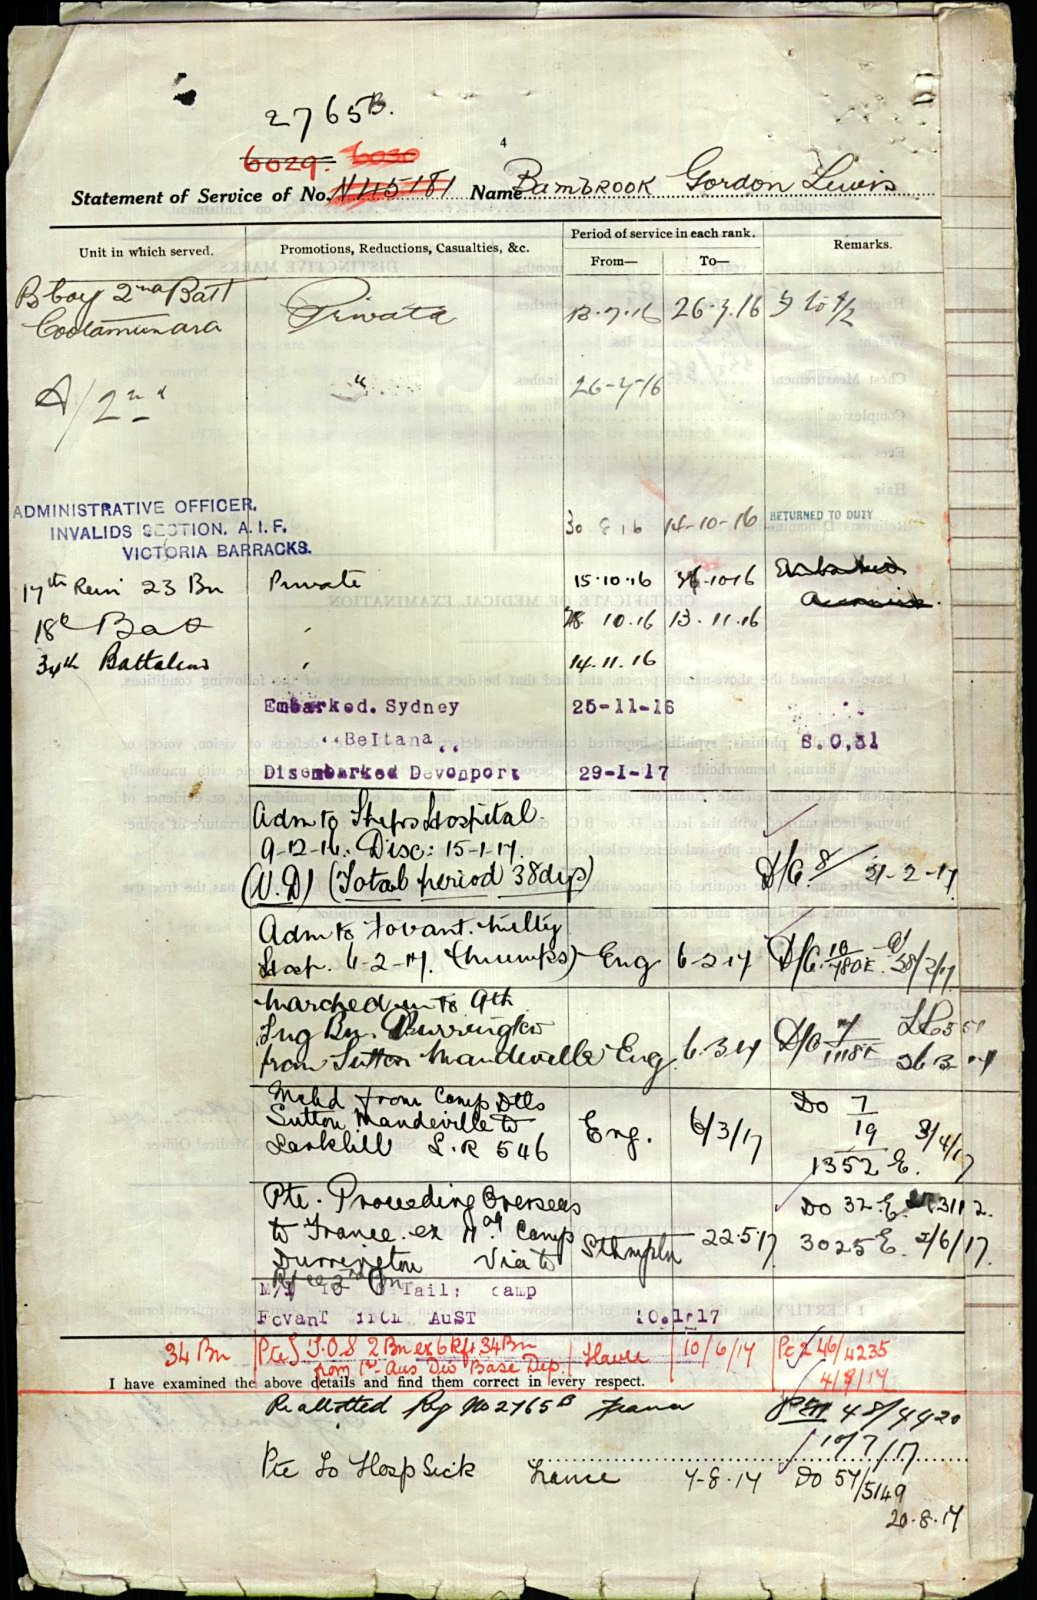 2765B.
6029. 6030
4
Statement of Service of No. N45181 Name Bambrook Gordon Lewis
Unit in which served. Promotions, Reductions, Casualties, &c. Period of service in each rank. Remarks.
From— To—
B Coy 2nd Batt Private 13.7.16 26.7.16
Cootamundra
A/2nd " 26-7-16
ADMINISTRATIVE OFFICER.
INVALIDS SECTION. A.I.F. 30 8 16 14-10-16 RETURNED TO DUTY
VICTORIA BARRACKS.
17th Rein 23 Bn Private 15.10.16 10.16 Embarked
18th Batt 28 10.16 13.11.16
34th Battalion 14.11.16
Embarked. Sydney 25-11-16
"Beltana" S.O.31
Disembarked Devonport 29-1-17
Adm to Ships Hospital.
9-12-16. Disc: 15-1-17.
(V.D) (Total period 38 dys) D/C. 8/ 21-2-17
Adm to Fovant. Milty
Hosp. 6-2-17. (Mumps) Eng 6-2-17 D/C. 10/780E. 28/2/17
Marched in to 9th
Trng Bn. Durrington
from Sutton Mandeville Eng 6.3.17 D/C 1118E 26.3.17
Mchd from Camp Dtls
Sutton Mandeville to Eng. 6/3/17 Do 7/19 3/4/17
Larkhill L.R 546 1352 E.
Pte. Proceeding Overseas Do 32.E.
to France. ex Camp Sthmptn 22.5.17 3025 E. 2/6/17.
Durrington Via to
Camp
Fovant AUST 10.1.17
34 Bn Pte T.O.S 2 Bn ex 6 Rfts 34 Bn Havre 10/6/17 46/4235
from 1st Aus Div Base Dep.
I have examined the above details and find them correct in every respect.
Reallotted Reg No 2765B France 48/4420
10/7/17
Pte To Hosp Sick France 7-8-17 Do 57/5149
20.8.17